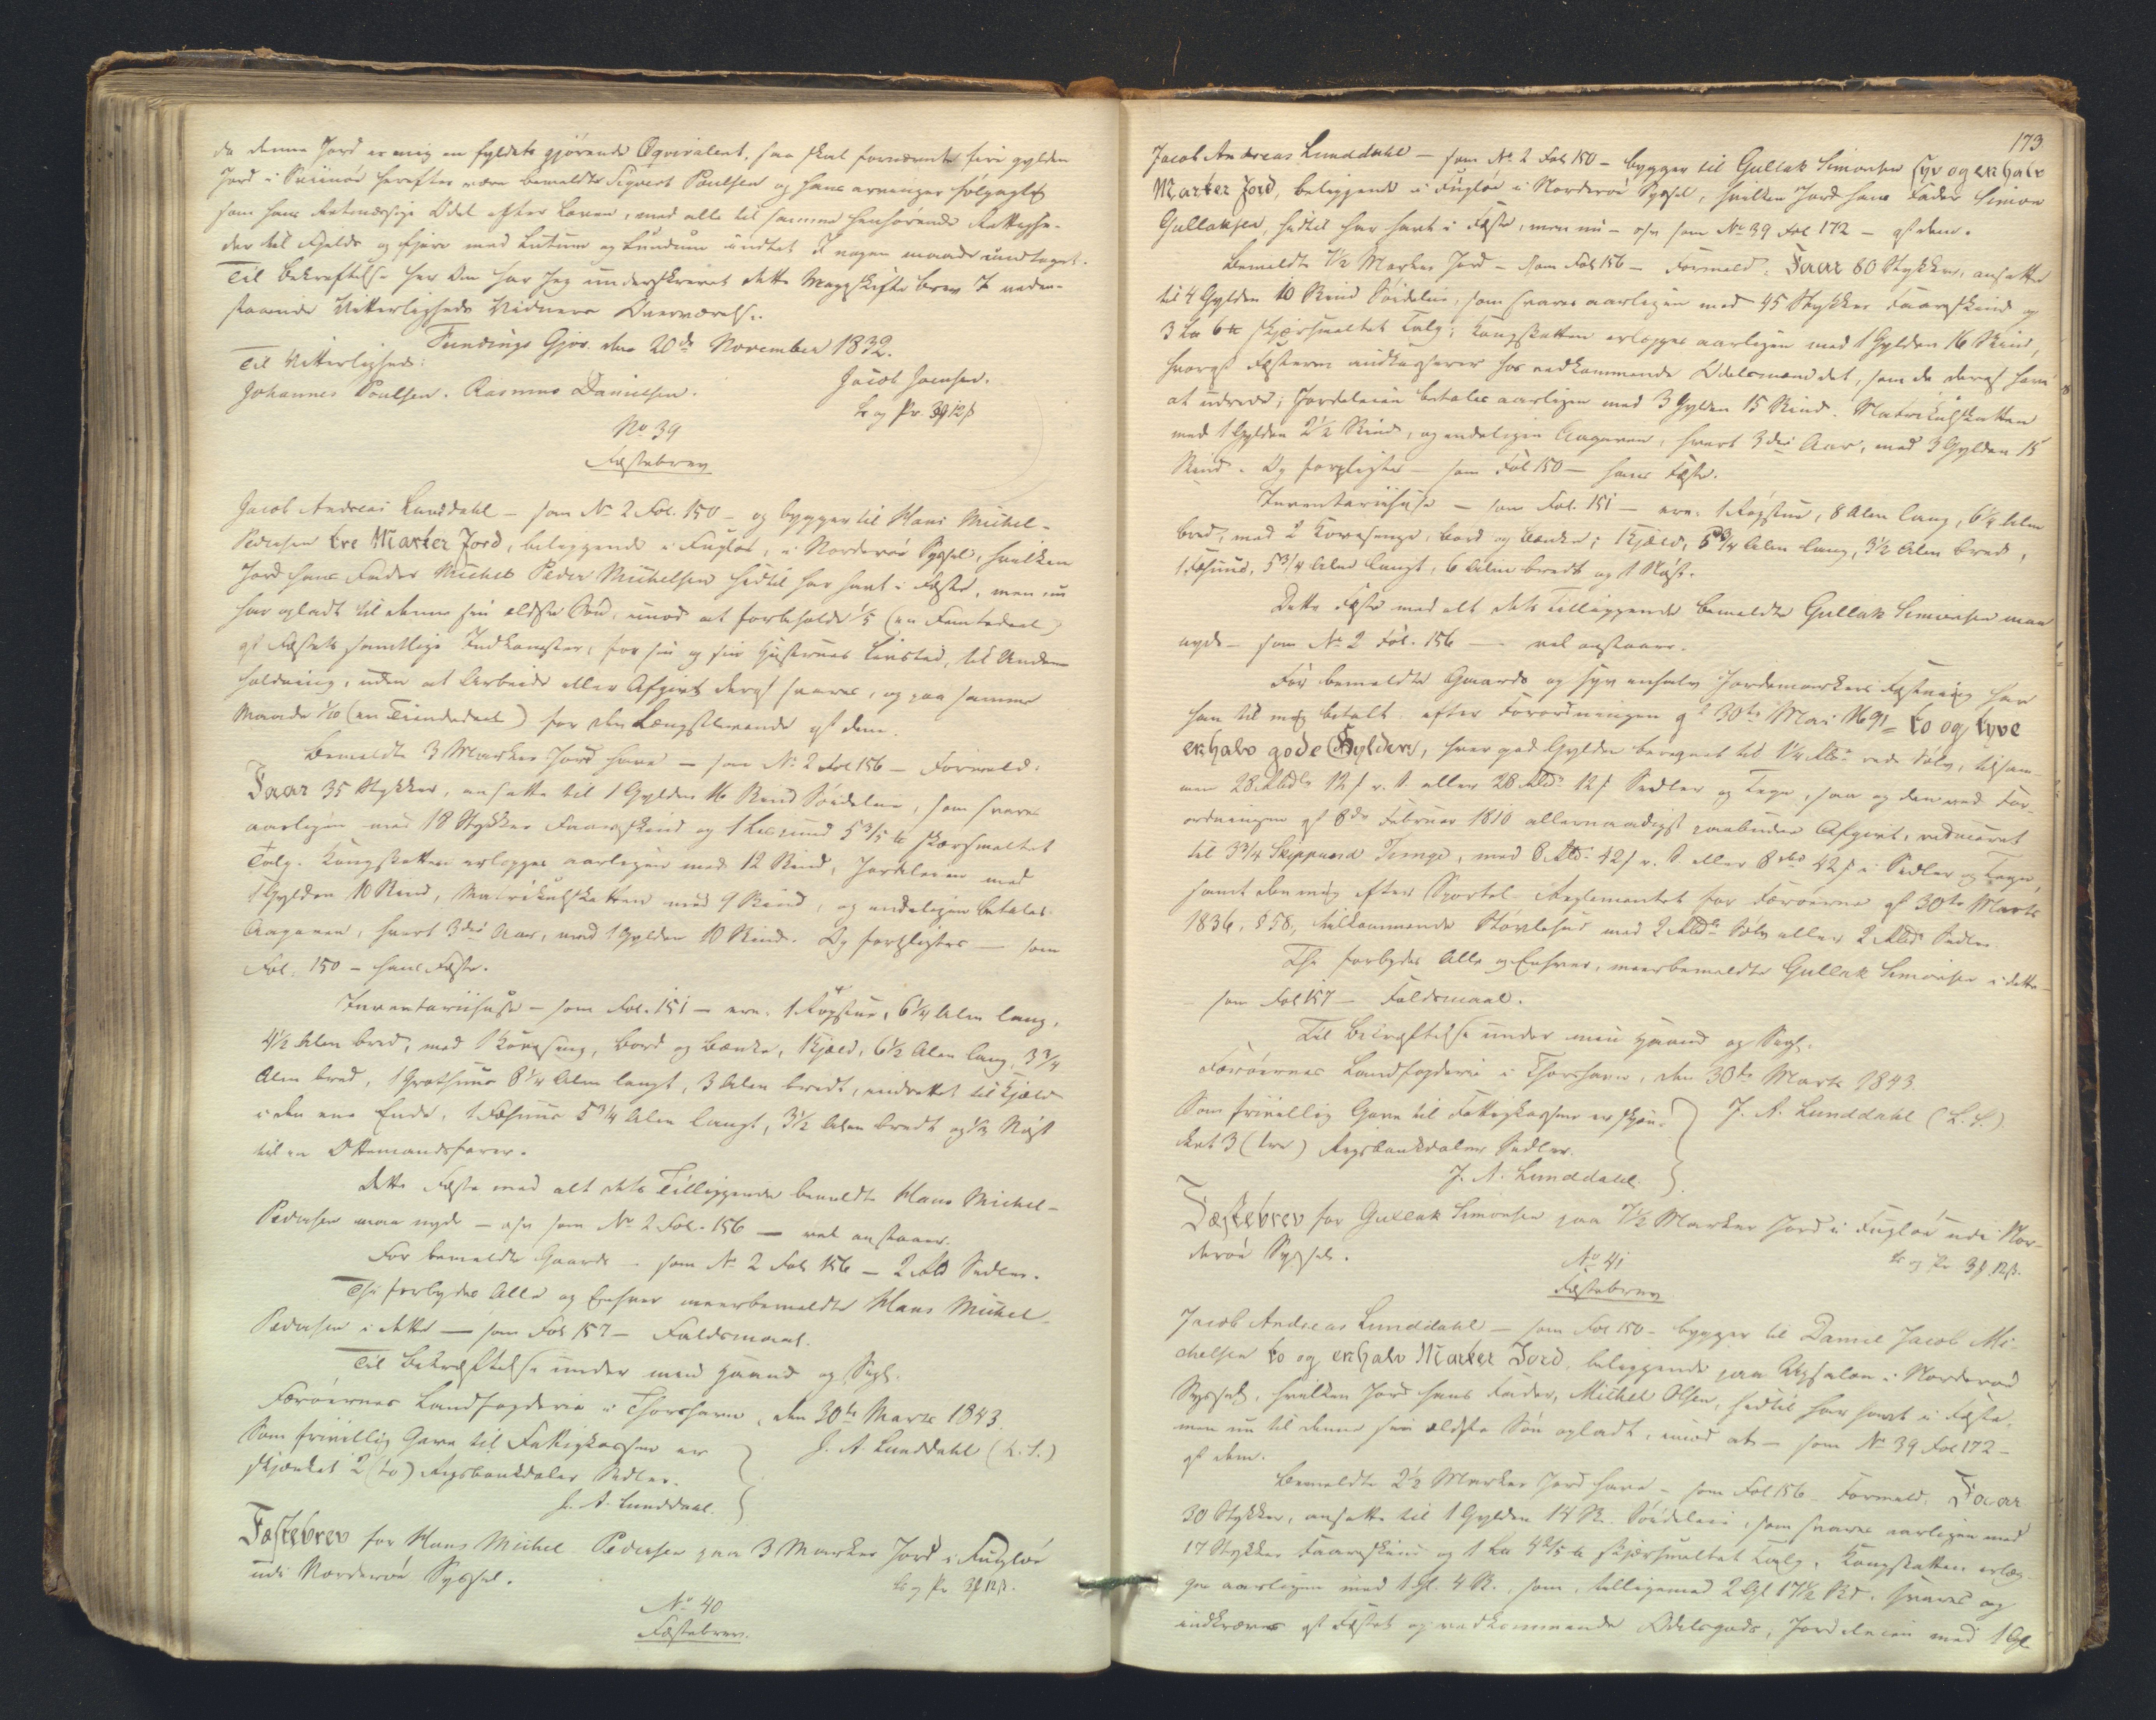 da denne Jord er mig en fyldest gjørende Eqvivalent, saa skal fornævnte fire gylden
Jord i Sviinöe herefter være bemeldte Sigvert Poulsen og hans arvinger følgagtig
som hans Retmæssige Odel efter Loven, med alle til samme henhørende Rettighe-
der til Fjelds og fjære med Lutum og Lundum undtet I nogen maade undtaget.
Til Bekræftelse her Om har Jeg underskrevet dette Mageskifte brev I neden-
staaende Vitterligheds Vidners Overværelse.
Fundings Gjov. den 20de November 1832.
Til Vitterlighed: Jacob Joensen.
Johannes Poulsen. Rasmus Danielsen. Ls og Pr. 3/12 ß
No 39
Fæstebrev
Jacob Andreas Lunddahl – som No 2 Fol. 150 – og bygger til Hans Michel-
Pedersen tre Marker Jord, beliggende i Fugløe, i Norderøe Syssel, hvilken
Jord hans Fader Michel Peder Michelsen hidtil har havt i Fæste, men nu
har opladt til denne sin ældste Søn, imod at forbeholde 1/5 (en Femtedeel)
af Fæstets samtlige Indkomster, for sin og sin Hustrues Livstid, til Under-
holdning, uden at Arbeide eller Afgivt deraf svares, og paa samme
Maade 1/10 (en Tiendedeel) for den Længstlevende af dem.
Bemeldte 3 Marker Jord have – som No 2 Fol 156 – Formeld:
Faar 35 Stykker, ansatte til 1 Gylden 16 Skind Søideleie, som svares
aarligen med 18 Stykker Faareskind og 1 Lispund 5 3/5 ℔ skjærsmeltet
Talg. Kongskatten erlægges aarligen med 12 Skind, Jordeleien med
1 Gylden 10 Skind, Matrikulskatten med 9 Skind, og endeligen betales
Aagaven, hvert 3die Aar, med 1 Gylden 10 Skind. Og forpligtes – som
Fol. 150 – hans Fæste.
Inventariihuse – som Fol. 151 – ere: 1 Røgstue, 6 1/4 Alen lang,
4 1/2 Alen bred, med 1 Kovesæng, Bord og Bænke, 1 Hjæld, 6 1/2 Alen lang, 3 3/4
Alen bred, 1 Grothuus 8 1/4 Alen langt, 3 Alen bredt, indrettet til Hjæld
i den ene Ende, 1 Fæhuus 5 3/4 Alen langt, 3 1/2 Alen bredt og 1/2 Nøst
til en Ottemandsfarer.
Dette Fæste med alt dets Tilliggende bemeldte Hans Michel-
Pedersen maa nyde – osv som No 2 Fol. 156 – vel anstaaer.
For bemeldte Gaards – som No 2 Fol 156 – 2 Rbd Sedler.
Thi forbydes Alle og Enhver meerbemeldte Hans Michel-
Pedersen i dette – som Fol 157 – Faldsmaal.
Til Bekræftelse under min Haand og Segl.
Færöernes Landfogderie i Thorshavn, den 30te Marts 1843.
Som frivillig Gave til Fattigkassen er J. A. Lunddahl (L. S.)
skjænket 2 (to) Rigsbankdaler Sedler.
J. A. Lunddahl.
Fæstebrev for Hans Michel Pedersen paa 3 Marker Jord i Fugløe
udi Norderøe Syssel. Ls og Pr 3/12 ß.
No 40
Fæstebrev.
173
Jacob Andreas Lunddahl – som No 2 Fol 150 – bygger til Gullak Simonsen syv og en halv
Marker Jord, beliggende i Fugløe i Norderøe Syssel, hvilken Jord hans Fader Simon
Gullaksen, hidtil har havt i Fæste, men nu – osv som No 39 Fol 172 – af dem.
Bemeldte 7 1/2 Marker Jord – som Fol 156 – Formeld: Faar 80 Stykker, ansatte
til 4 Gylden 10 Skind Søideleie, som svares aarligen med 45 Stykker Faareskind og
3 L℔ 6 ℔ skjærsmeltet Talg; Kongskatten erlægges aarligen med 1 Gylden 16 Skind,
hvoraf Fæsteren indkasserer hos vedkommende Odelsmænd det, som de deraf have
at udrede; Jordeleien betales aarligen med 3 Gylden 15 Skind. Matrikulskatten
med 1 Gylden 2 1/2 Skind, og endeligen Aagaven, hvert 3die Aar, med 3 Gylden 15
Skind. Og forpligtes – som Fol 150 – hans Fæste.
Inventariihuse – som Fol. 151 – ere: 1 Røgstue, 8 Alen lang, 6 1/4 Alen
bred, med 2 Kovesenge, Bord og Bænke; 1 Hjæld, 5 3/4 Alen lang, 3 1/2 Alen bred,
1 Fæhuus, 5 3/4 Alen langt, 6 Alen bredt og 1 Nøst.
Dette Fæste med alt dets Tilliggende bemeldte Gullak Simonsen maa
nyde – som No 2 Fol. 156 – vel anstaaer.
For bemeldte Gaards og syv enhalv Jordemarkers Fæstning har
han til mig betalt efter Forordningen af 30te Mai 1691 – to og tyve
en halv gode Gylden, hver god Gylden beregnet til 1 1/4 Rbd. rede Sølv, tilsam-
men 28 Rbdlr 12 ß r. S. eller 28 Rbd. 12 ß Sedler og Tegn, saa og den ved For-
ordningen af 8de Februar 1810 allernaadigst paabudne Afgivt, reduceret
til 3 3/4 Skippund Tunge, med 8 Rbd. 42 ß r. S. eller 8 rbd 42 ß i Sedler og Tegn,
samt den mig efter Sportel-Reglementet for Færöerne af 30te Marts
1836, § 58, tilkommende Støvlehud med 2 Rbd. Sølv eller 2 Rbd. Sedler.
Thi forbydes Alle og Enhver, meerbemeldte Gullak Simonsen i dette
– som Fol 157 – Faldsmaal.
Til Bekræftelse under min Haand og Segl.
Færöernes Landfogderie i Thorshavn, den 30te Marts 1843.
Som frivillig Gave til Fattigkassen er skjæn- J. A. Lunddahl (L. S.)
ket 3 (tre) Rigsbankdaler Sedler.
J. A. Lunddahl.
Fæstebrev for Gullak Simonsen paa 7 1/2 Marker Jord i Fugløe udi Nor-
derøe Syssel. Ls og Pr 3/12 ß.
No 41
Fæstebrev
Jacob Andreas Lunddahl – som Fol 150 – bygger til Daniel Jacob Mi-
chelsen to og en halv Marker Jord, beliggende paa Uxedalen i Norderøe
Syssel, hvilken Jord hans Fader, Michel Olsen, hidtil har havt i Fæste,
men nu til denne sin ældste Søn opladt, imod at – som No 39 Fol 172 –
af dem.
Bemeldte 2 1/2 Marker Jord have – som Fol 156 – Formeld. Faar
30 Stykker, ansatte til 1 Gylden 14 Sk. Søideleie, som svares aarligen med
17 Stykker Faareskind og 1 L℔ 4 2/5 ℔ skjærsmeltet Talg. Kongskatten erlæg-
ges aarligen med 1 Gl. 4 Sk., som, tilligemed 2 Gl 17 1/2 Skd. svares og
indkræves af Fæstet og vedkommende Odelsgods, Jordeleien med 1 Gl